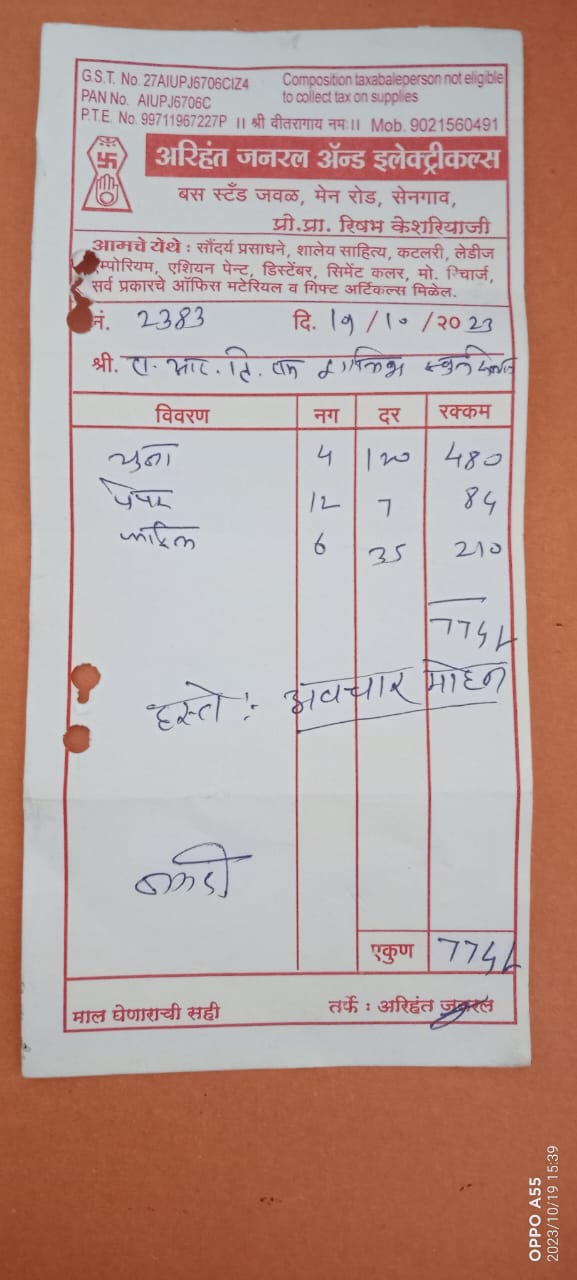 G.S.T. No. 27AIUPJ6706CIZ4 Composition taxabaleperson not eligible
PAN No. AIUPJ6706C to collect tax on supplies
P.T.E. No. 99711967227P ।। श्री वीतरागाय नमः।। Mob. 9021560491
अरिहंत जनरल ॲन्ड इलेक्ट्रीकल्स
बस स्टँड जवळ, मेन रोड, सेनगाव,
प्रो.प्रा. रिषभ केशरियाजी
आमचे येथे : सौंदर्य प्रसाधने, शालेय साहित्य, कटलरी, लेडीज
म्पोरियम, एशियन पेन्ट, डिस्टेंबर, सिमेंट कलर, मो. रिचार्ज,
सर्व प्रकारचे ऑफिस मटेरियल व गिफ्ट अर्टिकल्स मिळेल.
नं. 2383 दि. 19/10/2023
श्री. ए. आर. टि. एम
विवरण नग दर रक्कम
चुना 4 120 480
पेपर 12 7 84
फाईल 6 35 210
774/-
हस्ते : अवचार मोहन
एकुण 774/-
माल घेणाराची सही तर्फे : अरिहंत जनरल
OPPO A55
2023/10/19 15:39